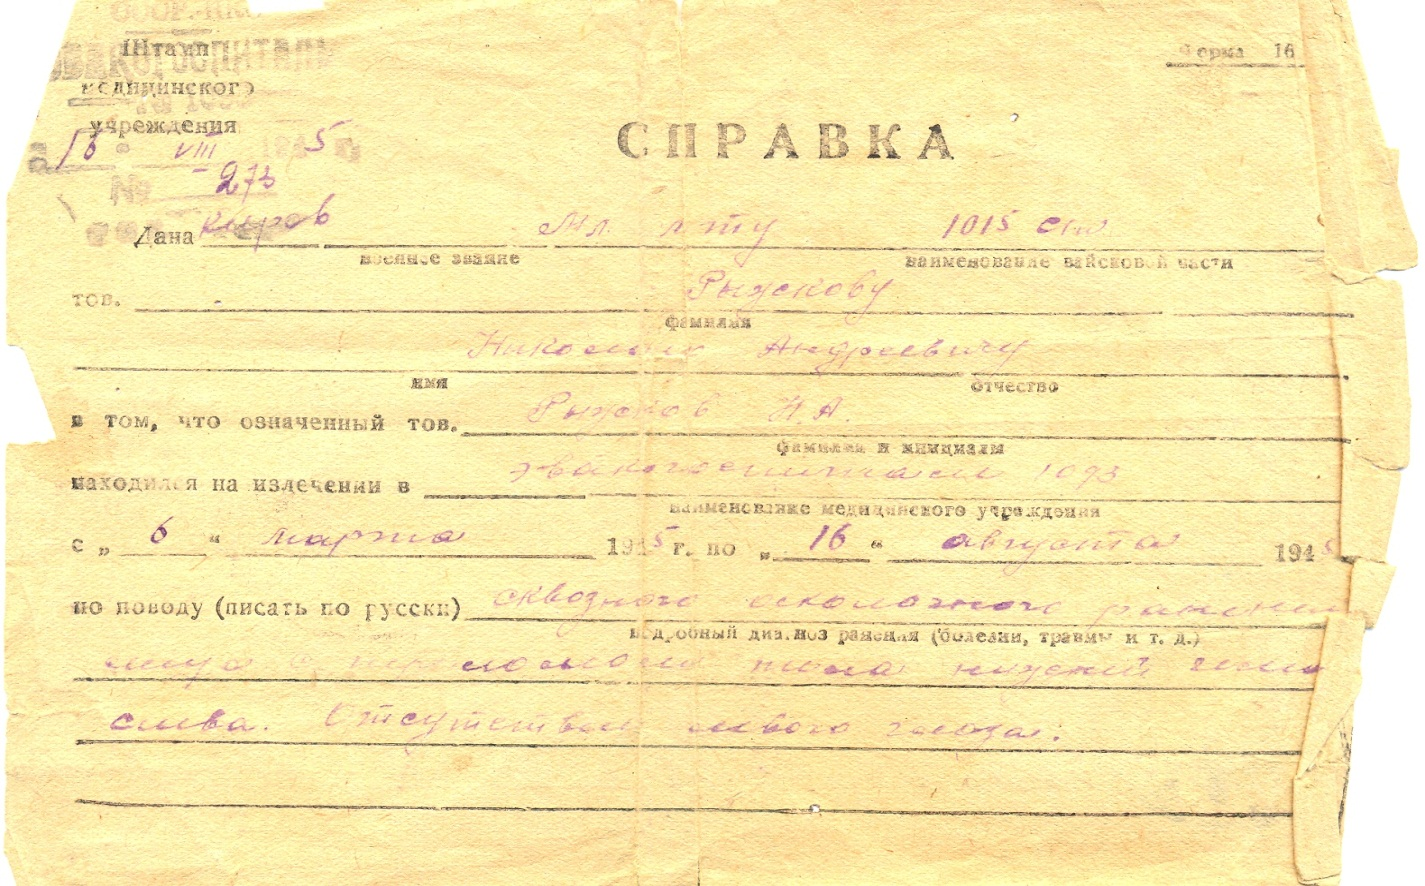 СССР-НКО
Штамп
ЭВАКОГОСПИТАЛЬ
медицинского
учреждения
Форма 16
16 " VIII 1945 г.
СПРАВКА
№ 273
Киров
Дана Мл. л-ту 1015
военное звание наименование вайсковой части
тов. Рыжкову
фамилия
Николаю Андреевичу
имя отчество
в том, что означенный тов. Рыжков Н. А.
фамилия и инициалы
находился на излечении в эвакогоспитале 1093
наименование медицинского учреждения
с „ 6 “ марта 1945 г. по „ 16 “ августа 1945
по поводу (писать по русски) сквозного осколочного ранения
подробный диагноз ранения (болезни, травмы и т. д.)
лица с переломом тела нижней челюсти
слева. Отсутствие левого глаза.